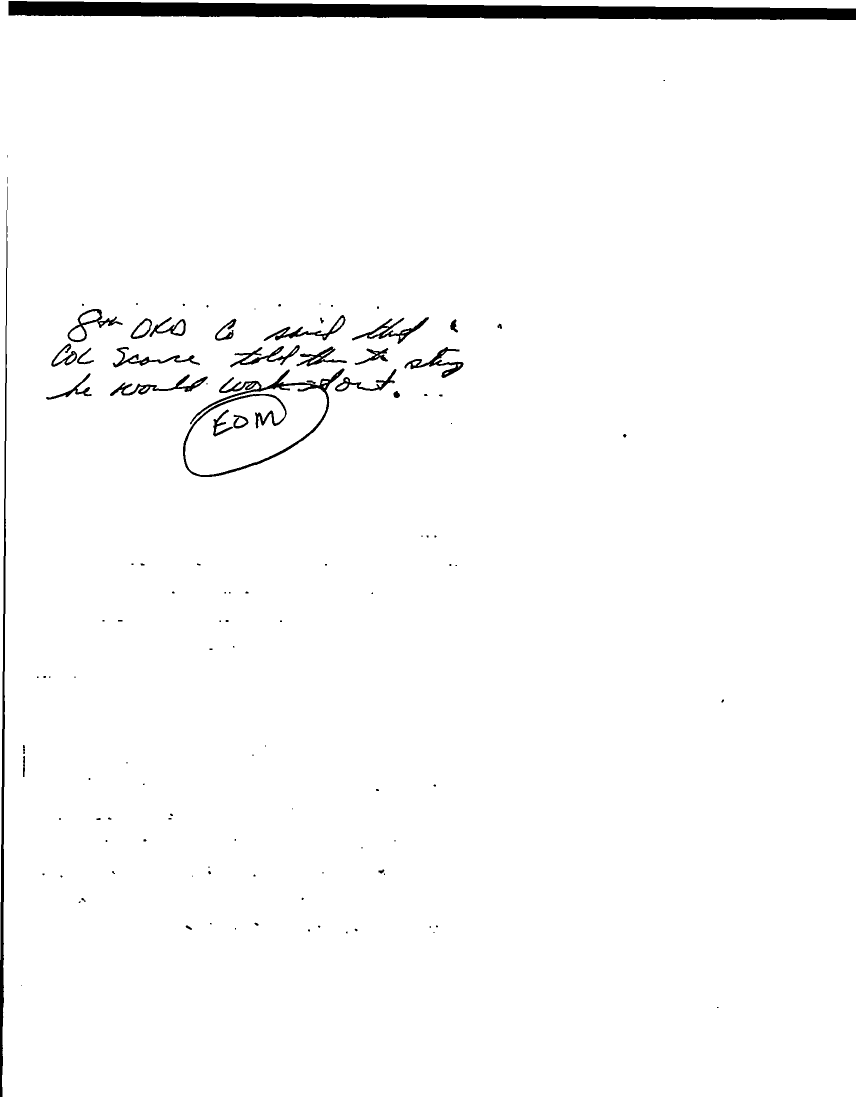 8th ORD Co said that
COL Scarce told them to stay
he would work it out.
EDM